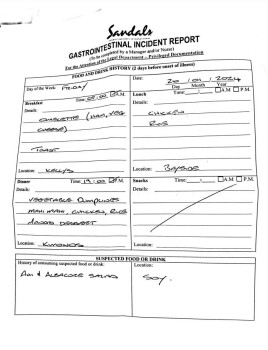 Sandals
GASTROINTESTINAL INCIDENT REPORT
(To be completed by a Manager and/or Nurse)
For the Attention of the Legal Department – Privileged Documentation
FOOD AND DRINK HISTORY (2 days before onset of illness)
Day of the Week: FRIDAY
Date: 2024
Day Month Year
Breakfast Time: A.M P.M.
Lunch Time: A.M P.M.
Details: OMELETTE (HAM, VEG
CHEESE)
TOAST
Details: CHICKEN
RICE
Location: KELLYS
Location: BAYSIDE
Dinner Time: 19:00 P.M.
Snacks Time: A.M P.M.
Details:
VEGETABLE DUMPLINGS
MAHI MAHI, CHICKEN, RICE
DESSERT
Details:
Location: KIMONOS
Location:
SUSPECTED FOOD OR DRINK
History of consuming suspected food or drink:
AHI & ALBACORE SALAD
Location:
SOY.